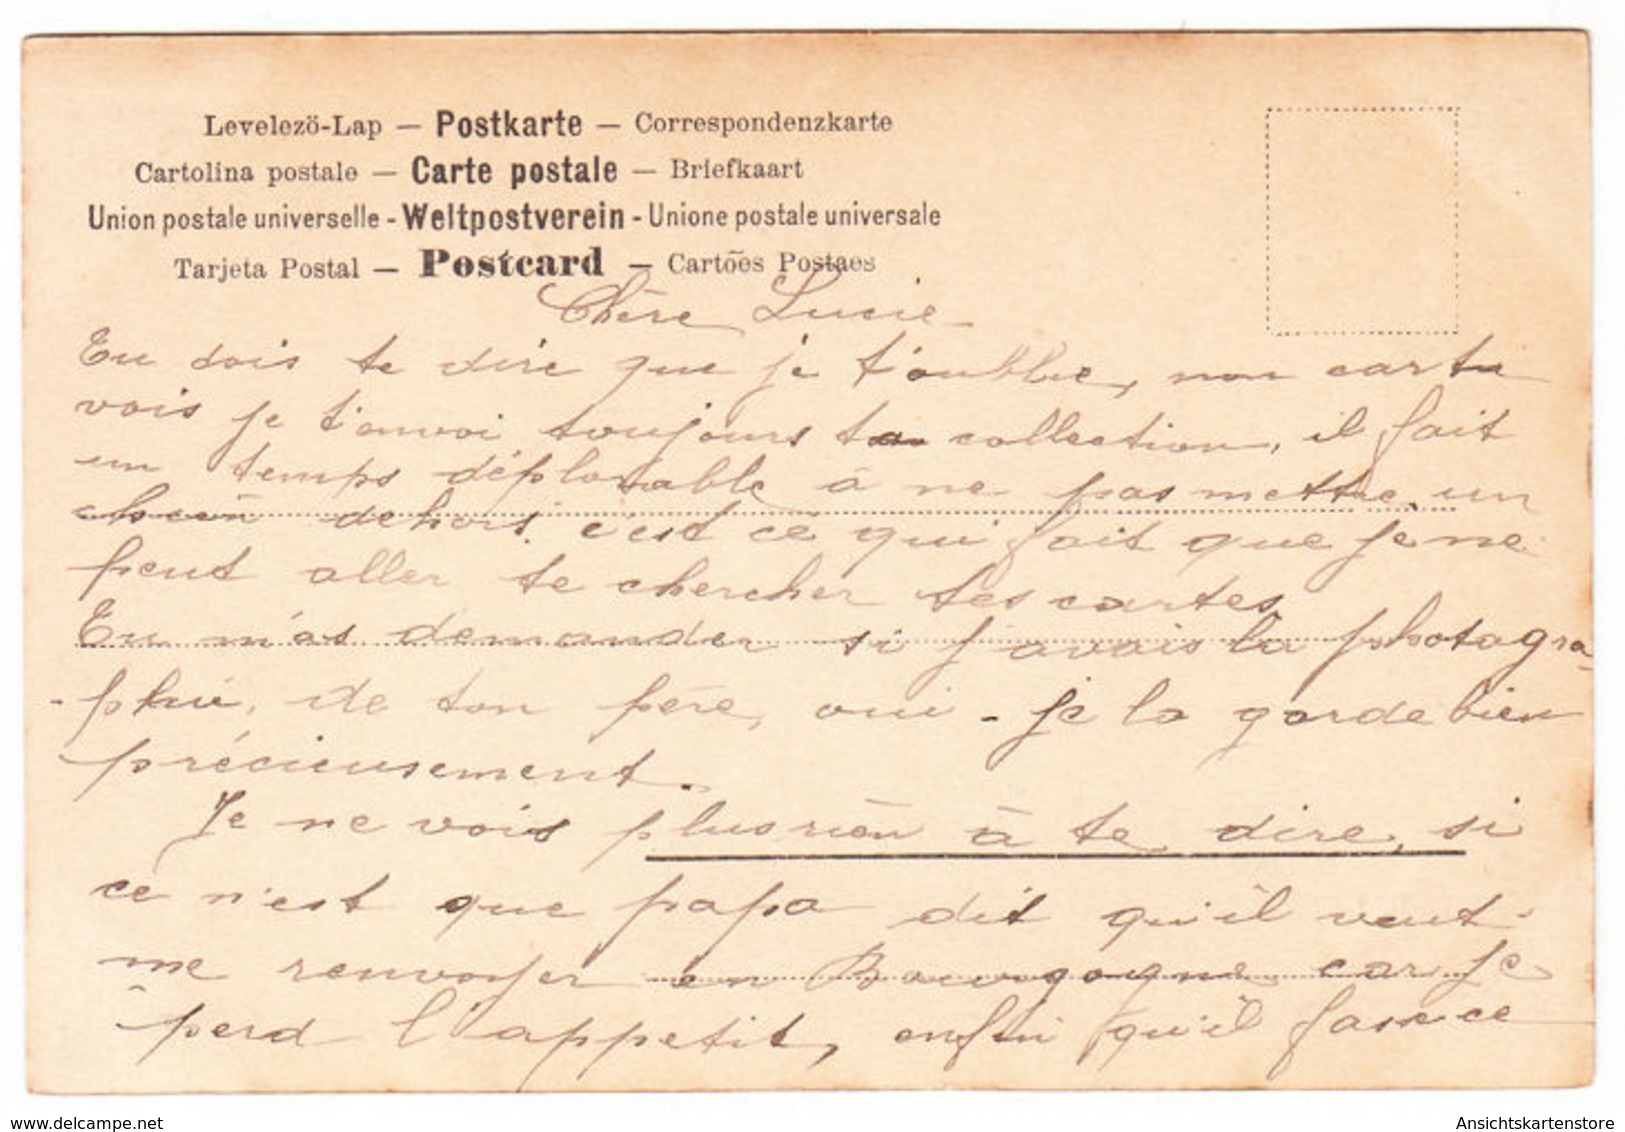 Levelezö-Lap — Postkarte — Correspondenzkarte
Cartolina postale — Carte postale — Briefkaart
Union postale universelle - Weltpostverein - Unione postale universale
Tarjeta Postal — Postcard — Cartões Postaes
Chère Lucie
Tu dois te dire que je t'oublie, non car tu
vois je t'envoi toujours ta collection, il fait
un temps déplorable à ne pas mettre un
chien dehors. c'est ce qui fait que je ne
peut aller te chercher tes cartes
Tu m'as demander si j'avais la photogra-
-phie, de ton père, oui - je la garde bien
précieusement.
Je ne vois plus rien à te dire, si
ce n'est que papa dit qu'il veut
me renvoyer en Bourgogne car je
perd l'appetit, enfin qu'il fasse ce
www.delcampe.net
Ansichtskartenstore